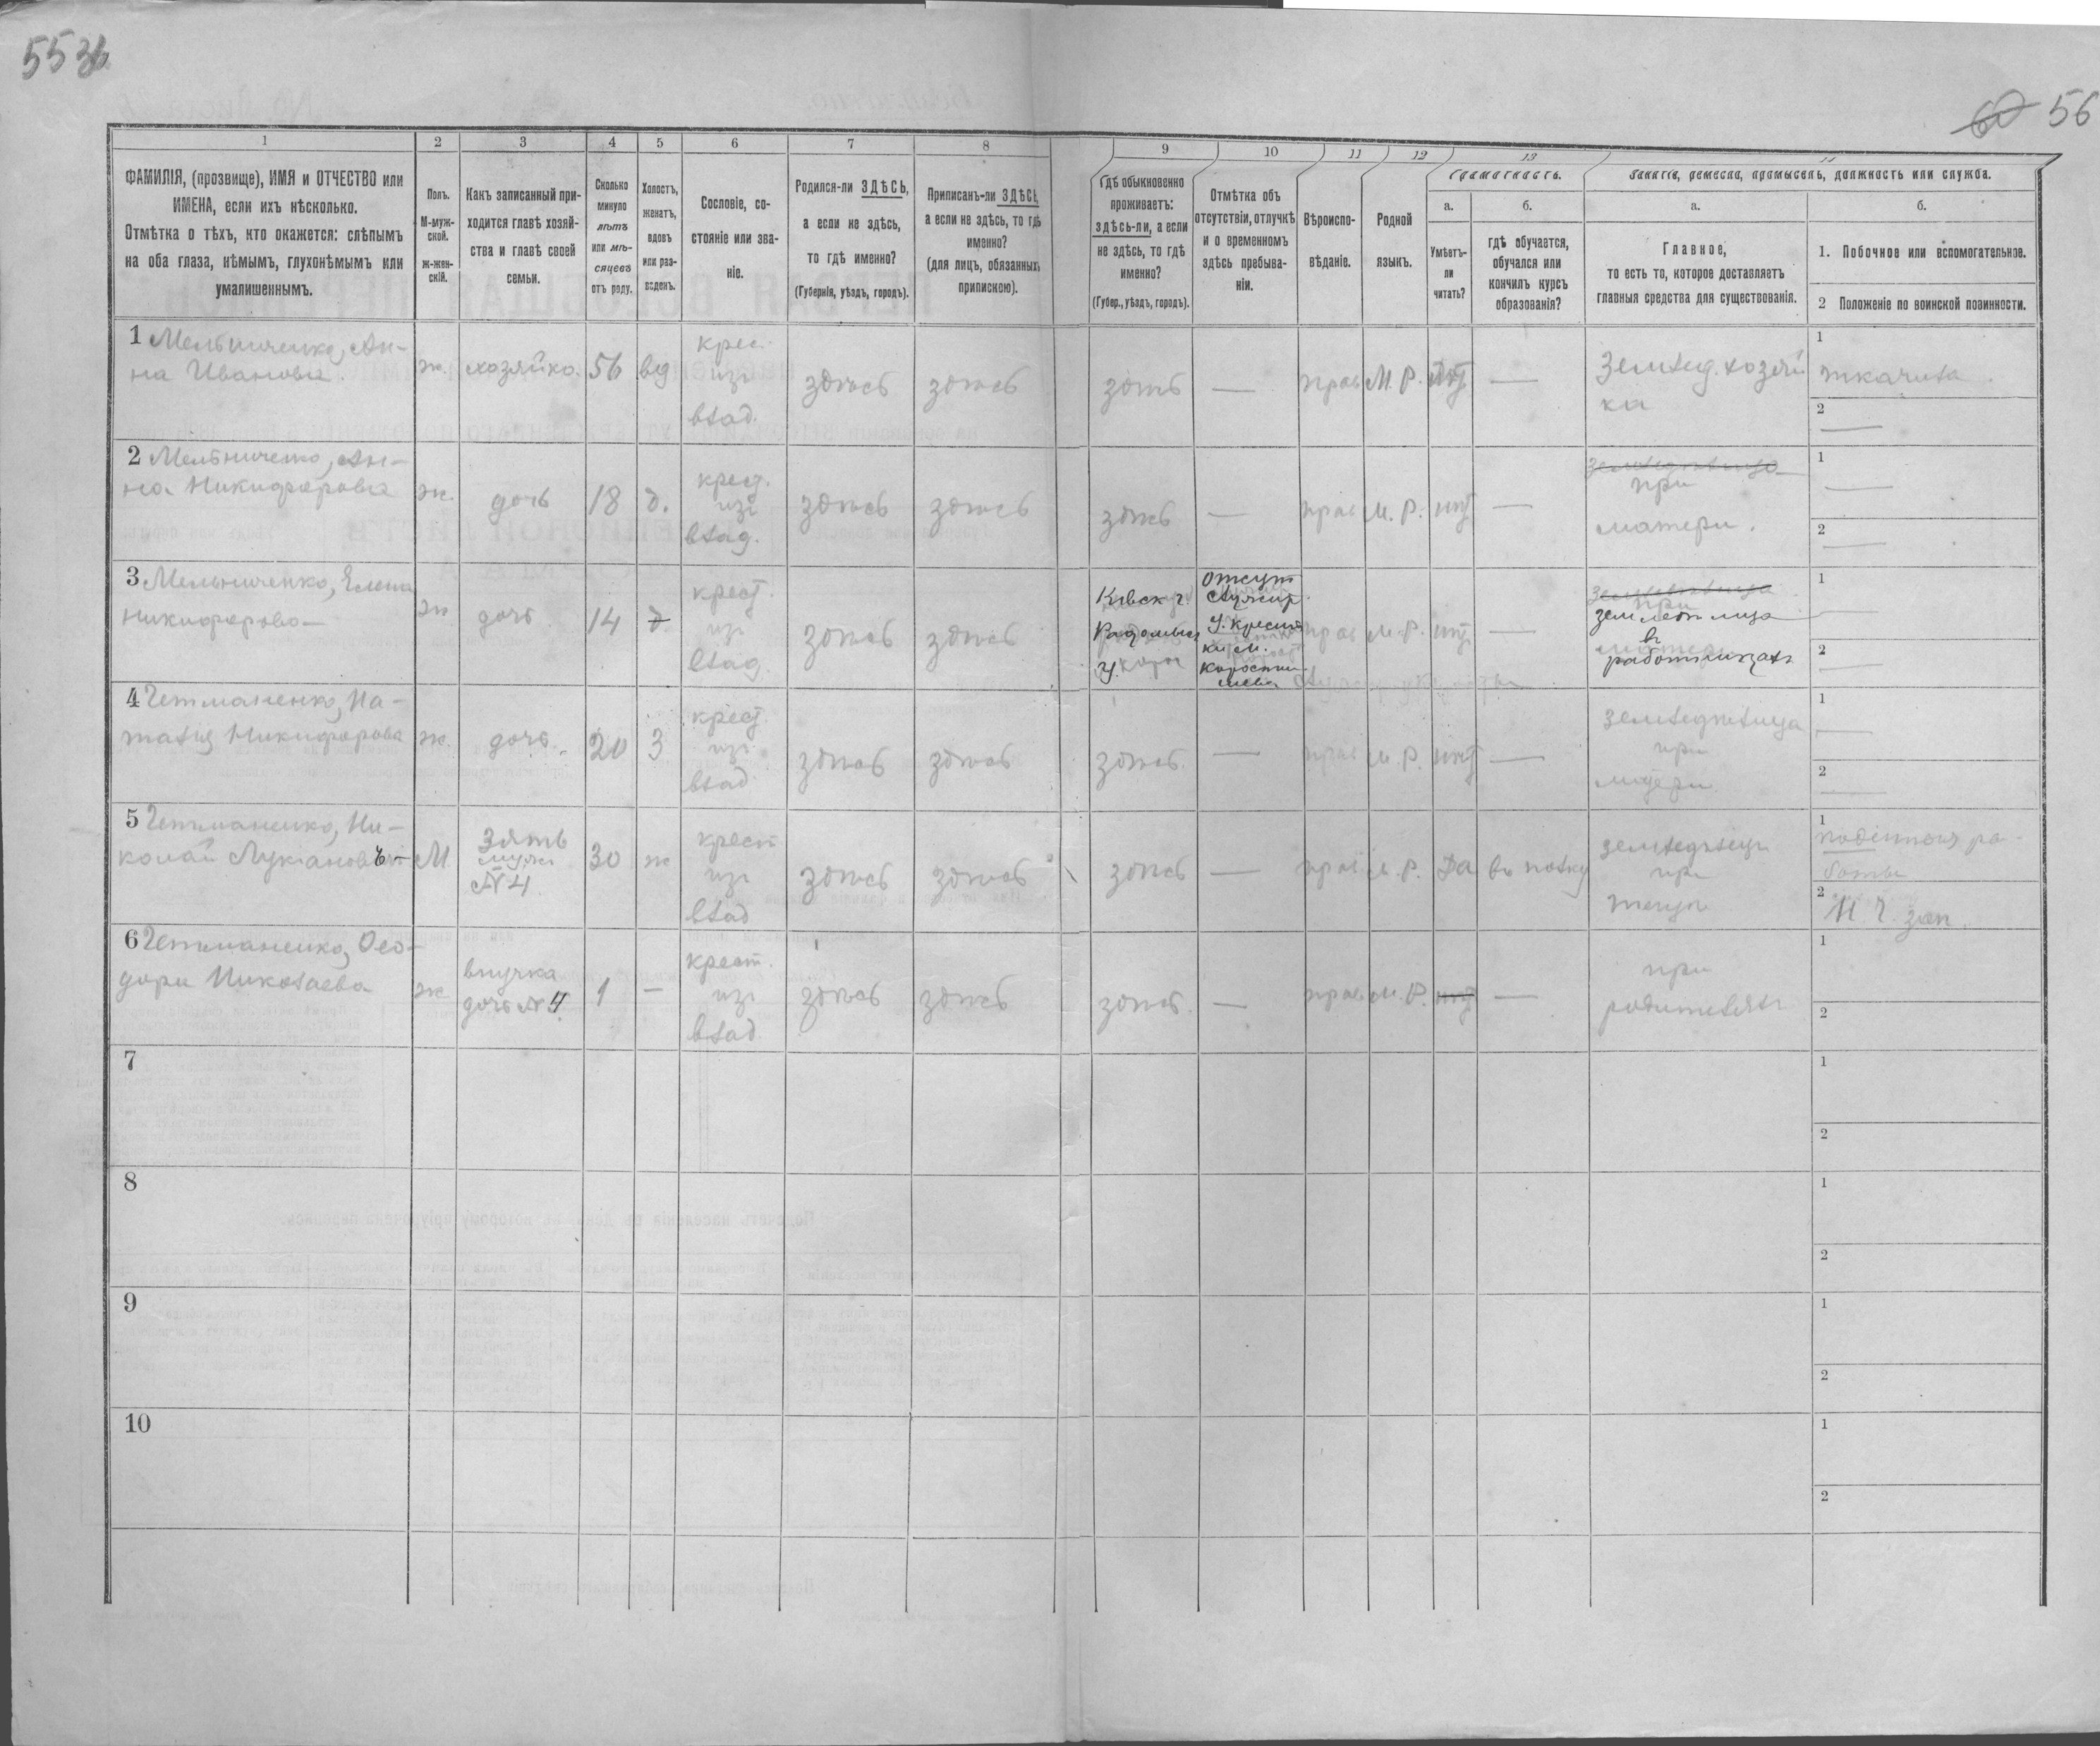 553б
60 56
1 2 3 4 5 6 7 8 9 10 11 12 13 14
ФАМИЛІЯ, (прозвище), ИМЯ и ОТЧЕСТВО или
ИМЕНА, если ихъ нѣсколько.
Отмѣтка о тѣхъ, кто окажется: слѣпымъ
на оба глаза, нѣмымъ, глухонѣмымъ или
умалишеннымъ.
Полъ.
М-муж-
ской.
ж-жен-
скій.
Какъ записанный при-
ходится главѣ хозяй-
ства и главѣ своей
семьи.
Сколько
минуло
лѣтъ
или мѣ-
сяцевъ
отъ роду.
Холостъ,
женатъ,
вдовъ
или раз-
веденъ.
Сословіе, со-
стояніе или зва-
ніе.
Родился-ли ЗДѢСЬ,
а если не здѣсь,
то гдѣ именно?
(Губернія, уѣздъ, городъ).
Приписанъ-ли ЗДѢСЬ,
а если не здѣсь, то гдѣ
именно?
(для лицъ, обязанныхъ
припискою).
Гдѣ обыкновенно
проживаетъ:
здѣсь-ли, а если
не здѣсь, то гдѣ
именно?
(Губер., уѣздъ, городъ).
Отмѣтка объ
отсутствіи, отлучкѣ
и о временномъ
здѣсь пребыва-
ніи.
Вѣроиспо-
вѣданіе.
Родной
языкъ.
Грамотность.
а.
Умѣетъ-
ли
читать?
б.
гдѣ обучается,
обучался или
кончилъ курсъ
образованія?
Занятіе, ремесло, промыселъ, должность или служба.
а.
Главное,
то есть то, которое доставляетъ
главныя средства для существованія.
б.
1. Побочное или вспомогательное.
2 Положеніе по воинской повинности.
1 Мельниченко, Ан-
на Иванова.
ж. хозяйка. 56 вд
крес.
изъ
влад.
здѣсь здѣсь здѣсь — прав М. Р. нѣт —
Землед. хозяй
ка
1 ткачиха.
2 —
2 Мельниченко, Ан-
на Никифорова
ж. дочь 18 д.
крест.
изъ
влад.
здѣсь здѣсь здѣсь — прав М. Р. нѣт —
земледѣлица
при
матери.
1 —
2 —
3 Мельниченко, Елена
Никифорова—
ж дочь 14 д
крест.
изъ
влад.
здѣсь здѣсь
Кіевск г.
Радомысл
у.
отсут
прав М. Р. нѣт —
при
в
работницахъ
1 —
2 —
4 Гетманенко, На-
талія Никифорова
ж. дочь 20 З
крест.
изъ
влад
здѣсь здѣсь здѣсь. — прав М. Р. нѣт —
земледѣлица
при
матери
1 —
2 —
5 Гетманенко, Ни-
колай Лукіановъ
М
Зять
мужъ
№ 4
30 ж
крест
изъ
влад
здѣсь здѣсь здѣсь — прав М. Р. Да въ полку
земледѣлец
при
тещи
1 поденная ра-
боты
2 Н. Ч. зап.
6 Гетманенко, Ѳео-
дора Николаева
ж
внучка
дочь № 4
1 —
крест.
изъ
влад
здѣсь здѣсь здѣсь. — прав М. Р. нѣт —
при
родителяхъ
1
2
7
1
2
8
1
2
9
1
2
10
1
2